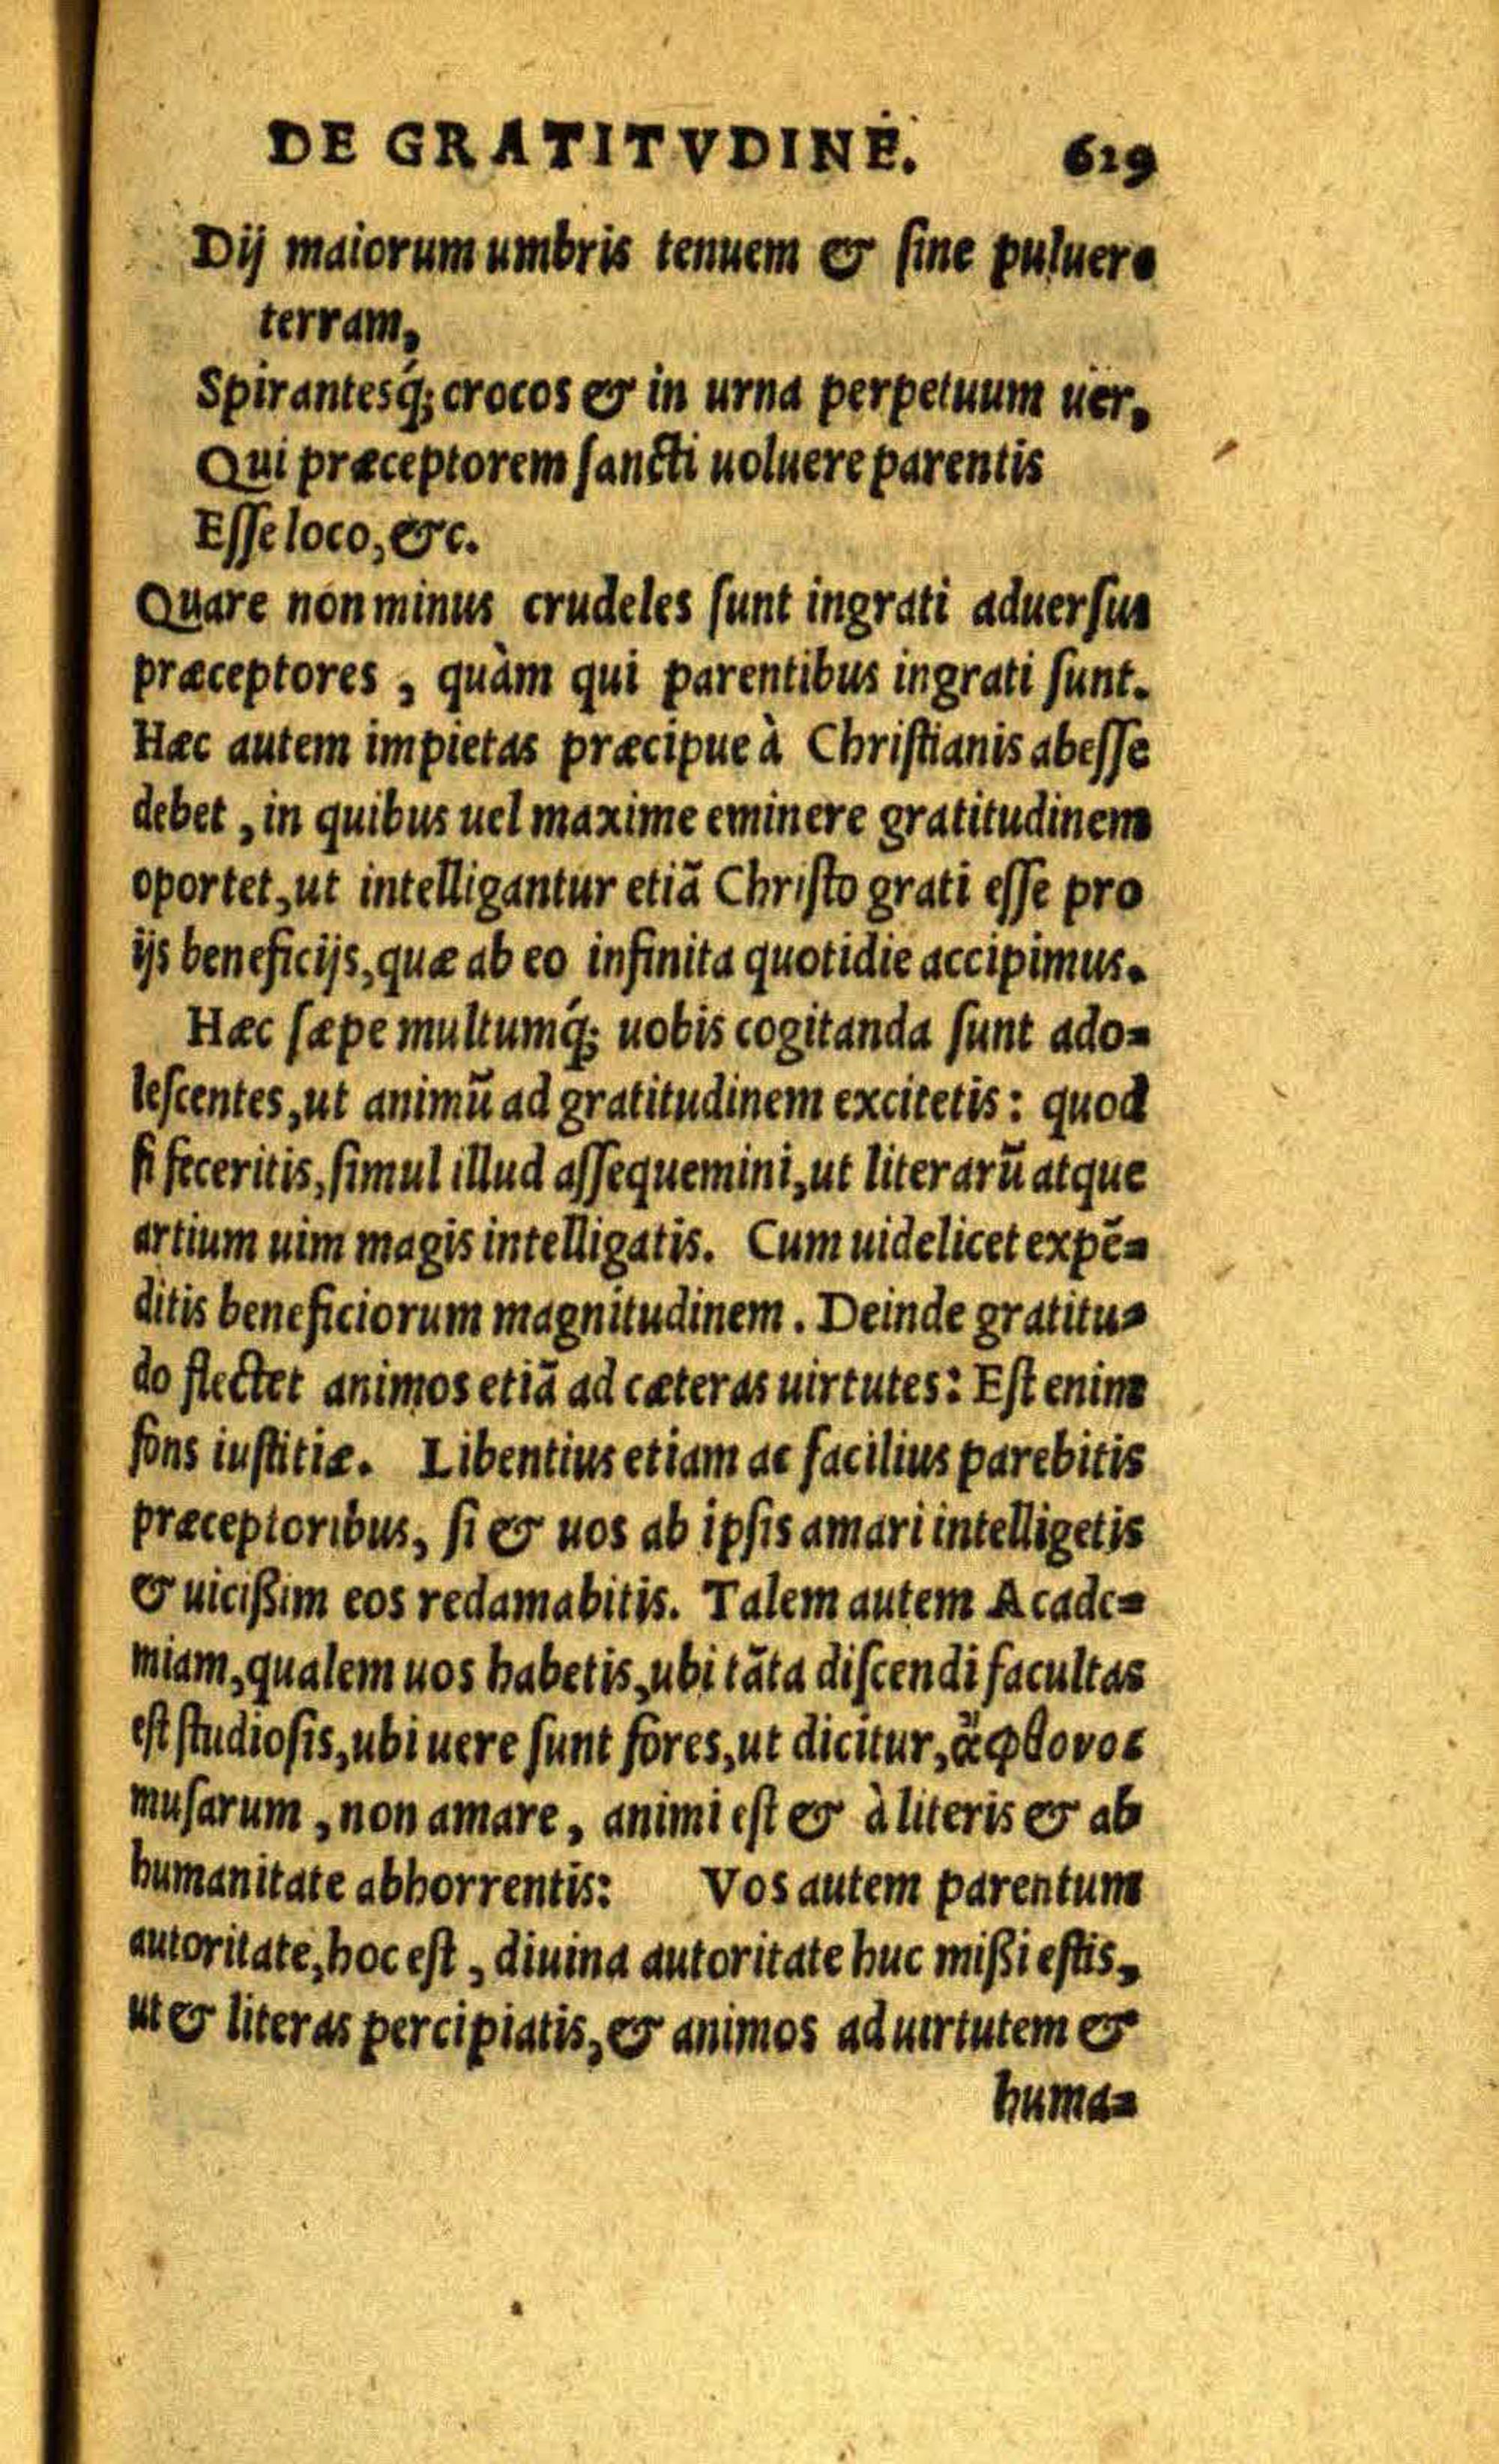 DE GRATITVDINE. 629
Dij maiorum umbris tenuem & ſine puluere
terram,
Spirantesq́; crocos & in urna perpetuum uer,
Qui præceptorem ſancti uoluere parentis
Eſſe loco, &c.
Quare non minus crudeles ſunt ingrati aduerſus
præceptores, quàm qui parentibus ingrati ſunt.
Hæc autem impietas præcipue à Chriſtianis abeſſe
debet, in quibus uel maxime eminere gratitudinem
oportet, ut intelligantur etiã Chriſto grati eſſe pro
ijs beneficijs, quæ ab eo infinita quotidie accipimus.
Hæc ſæpe multumq́; uobis cogitanda ſunt ado-
leſcentes, ut animũ ad gratitudinem excitetis: quod
ſi feceritis, ſimul illud aſſequemini, ut literarũ atque
artium uim magis intelligatis. Cum uidelicet expẽ-
ditis beneficiorum magnitudinem. Deinde gratitu-
do flectet animos etiã ad cæteras uirtutes: Eſt enim
fons iuſtitiæ. Libentius etiam ac facilius parebitis
præceptoribus, ſi & uos ab ipſis amari intelligetis
& uicißim eos redamabitis. Talem autem Acade-
miam, qualem uos habetis, ubi tãta diſcendi facultas
eſt ſtudioſis, ubi uere ſunt fores, ut dicitur, ἄφθονος
muſarum, non amare, animi eſt & à literis & ab
humanitate abhorrentis: Vos autem parentum
autoritate, hoc eſt, diuina autoritate huc mißi eſtis,
ut & literas percipiatis, & animos ad uirtutem &
huma-